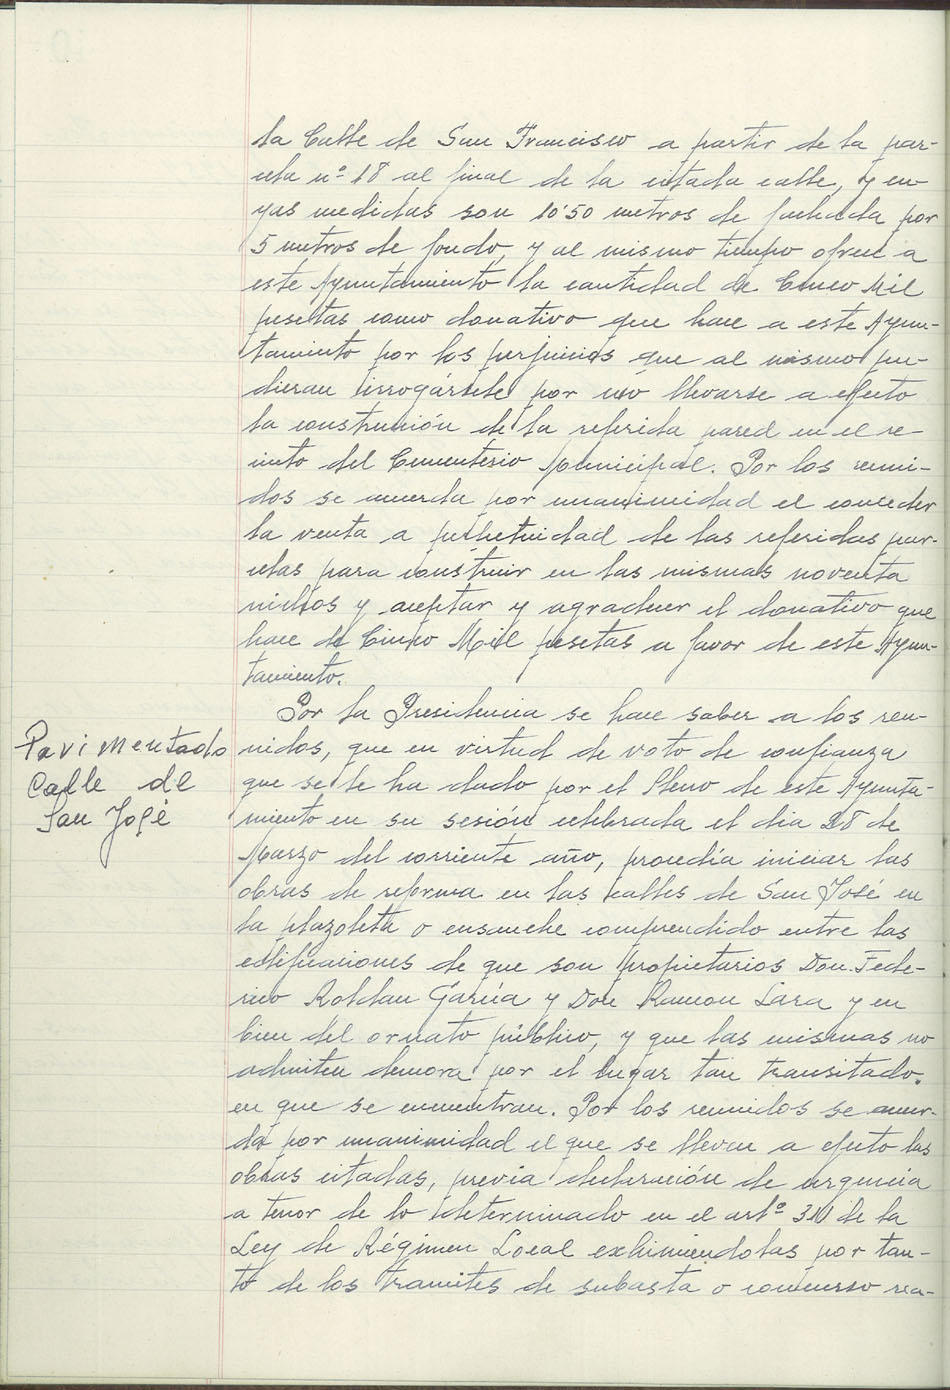 la Calle de San Francisco a partir de la par-
cela nº 18 al final de la citada calle, y cu-
yas medidas son 10'50 metros de fachada por
5 metros de fondo, y al mismo tiempo ofrece a
este Ayuntamiento la cantidad de Cinco Mil
pesetas como donativo que hace a este Ayun-
tamiento por los perjuicios que al mismo pu-
dieran irrogársele por no llevarse a efecto
la construción de la referida pared en el re-
cinto del Cementerio Municipal. Por los reuni-
dos se acuerda por unanimidad el conceder
la venta a perpetuidad de las referidas par-
celas para construir en las mismas noventa
nichos y aceptar y agradecer el donativo que
hace de Cinco Mil pesetas a favor de este Ayun-
tamiento.
Por la Presidencia se hace saber a los reu-
Pavimentado
Calle de
San José
nidos, que en virtud de voto de confianza
que se le ha dado por el Pleno de este Ayunta-
miento en su sesión celebrada el dia 28 de
Marzo del corriente año, procedía iniciar las
obras de reforma en las calles de San José en
la plazoleta o ensanche comprendido entre las
edificaciones de que son propietarios Don Fede-
rico Roldan García y Don Ramon Lara y en
bien del ornato público, y que las mismas no
admiten demora por el lugar tan transitado.
en que se encuentran. Por los reunidos se acuer-
da por unanimidad el que se lleven a efecto las
obras citadas, previa declaración de urgencia
a tenor de lo determinado en el artº 311 de la
Ley de Régimen Local exhimiendolas por tan-
to de los tramites de subasta o concurso rea-